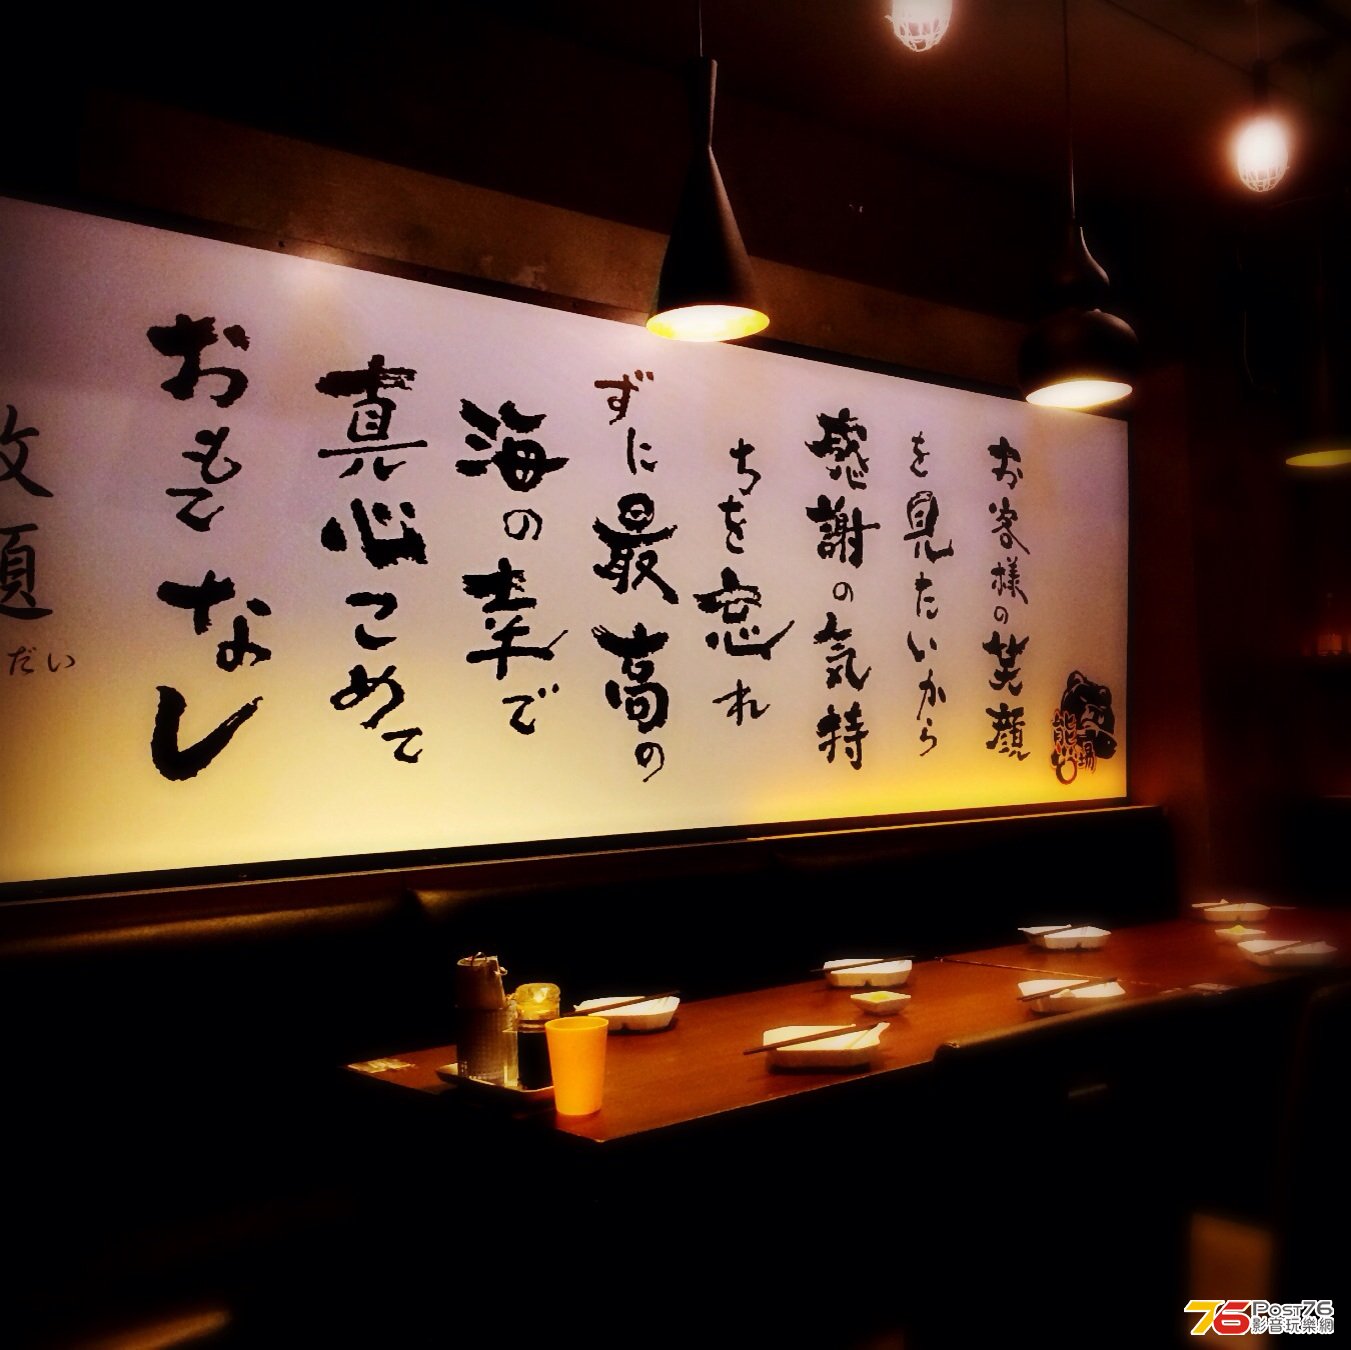 お客様の笑顔
を見たいから
感謝の気持
ちを忘れ
ずに最高の
海の幸で
真心こめて
おもてなし
放題
だい
熊
場
76 Post76
影音玩樂網